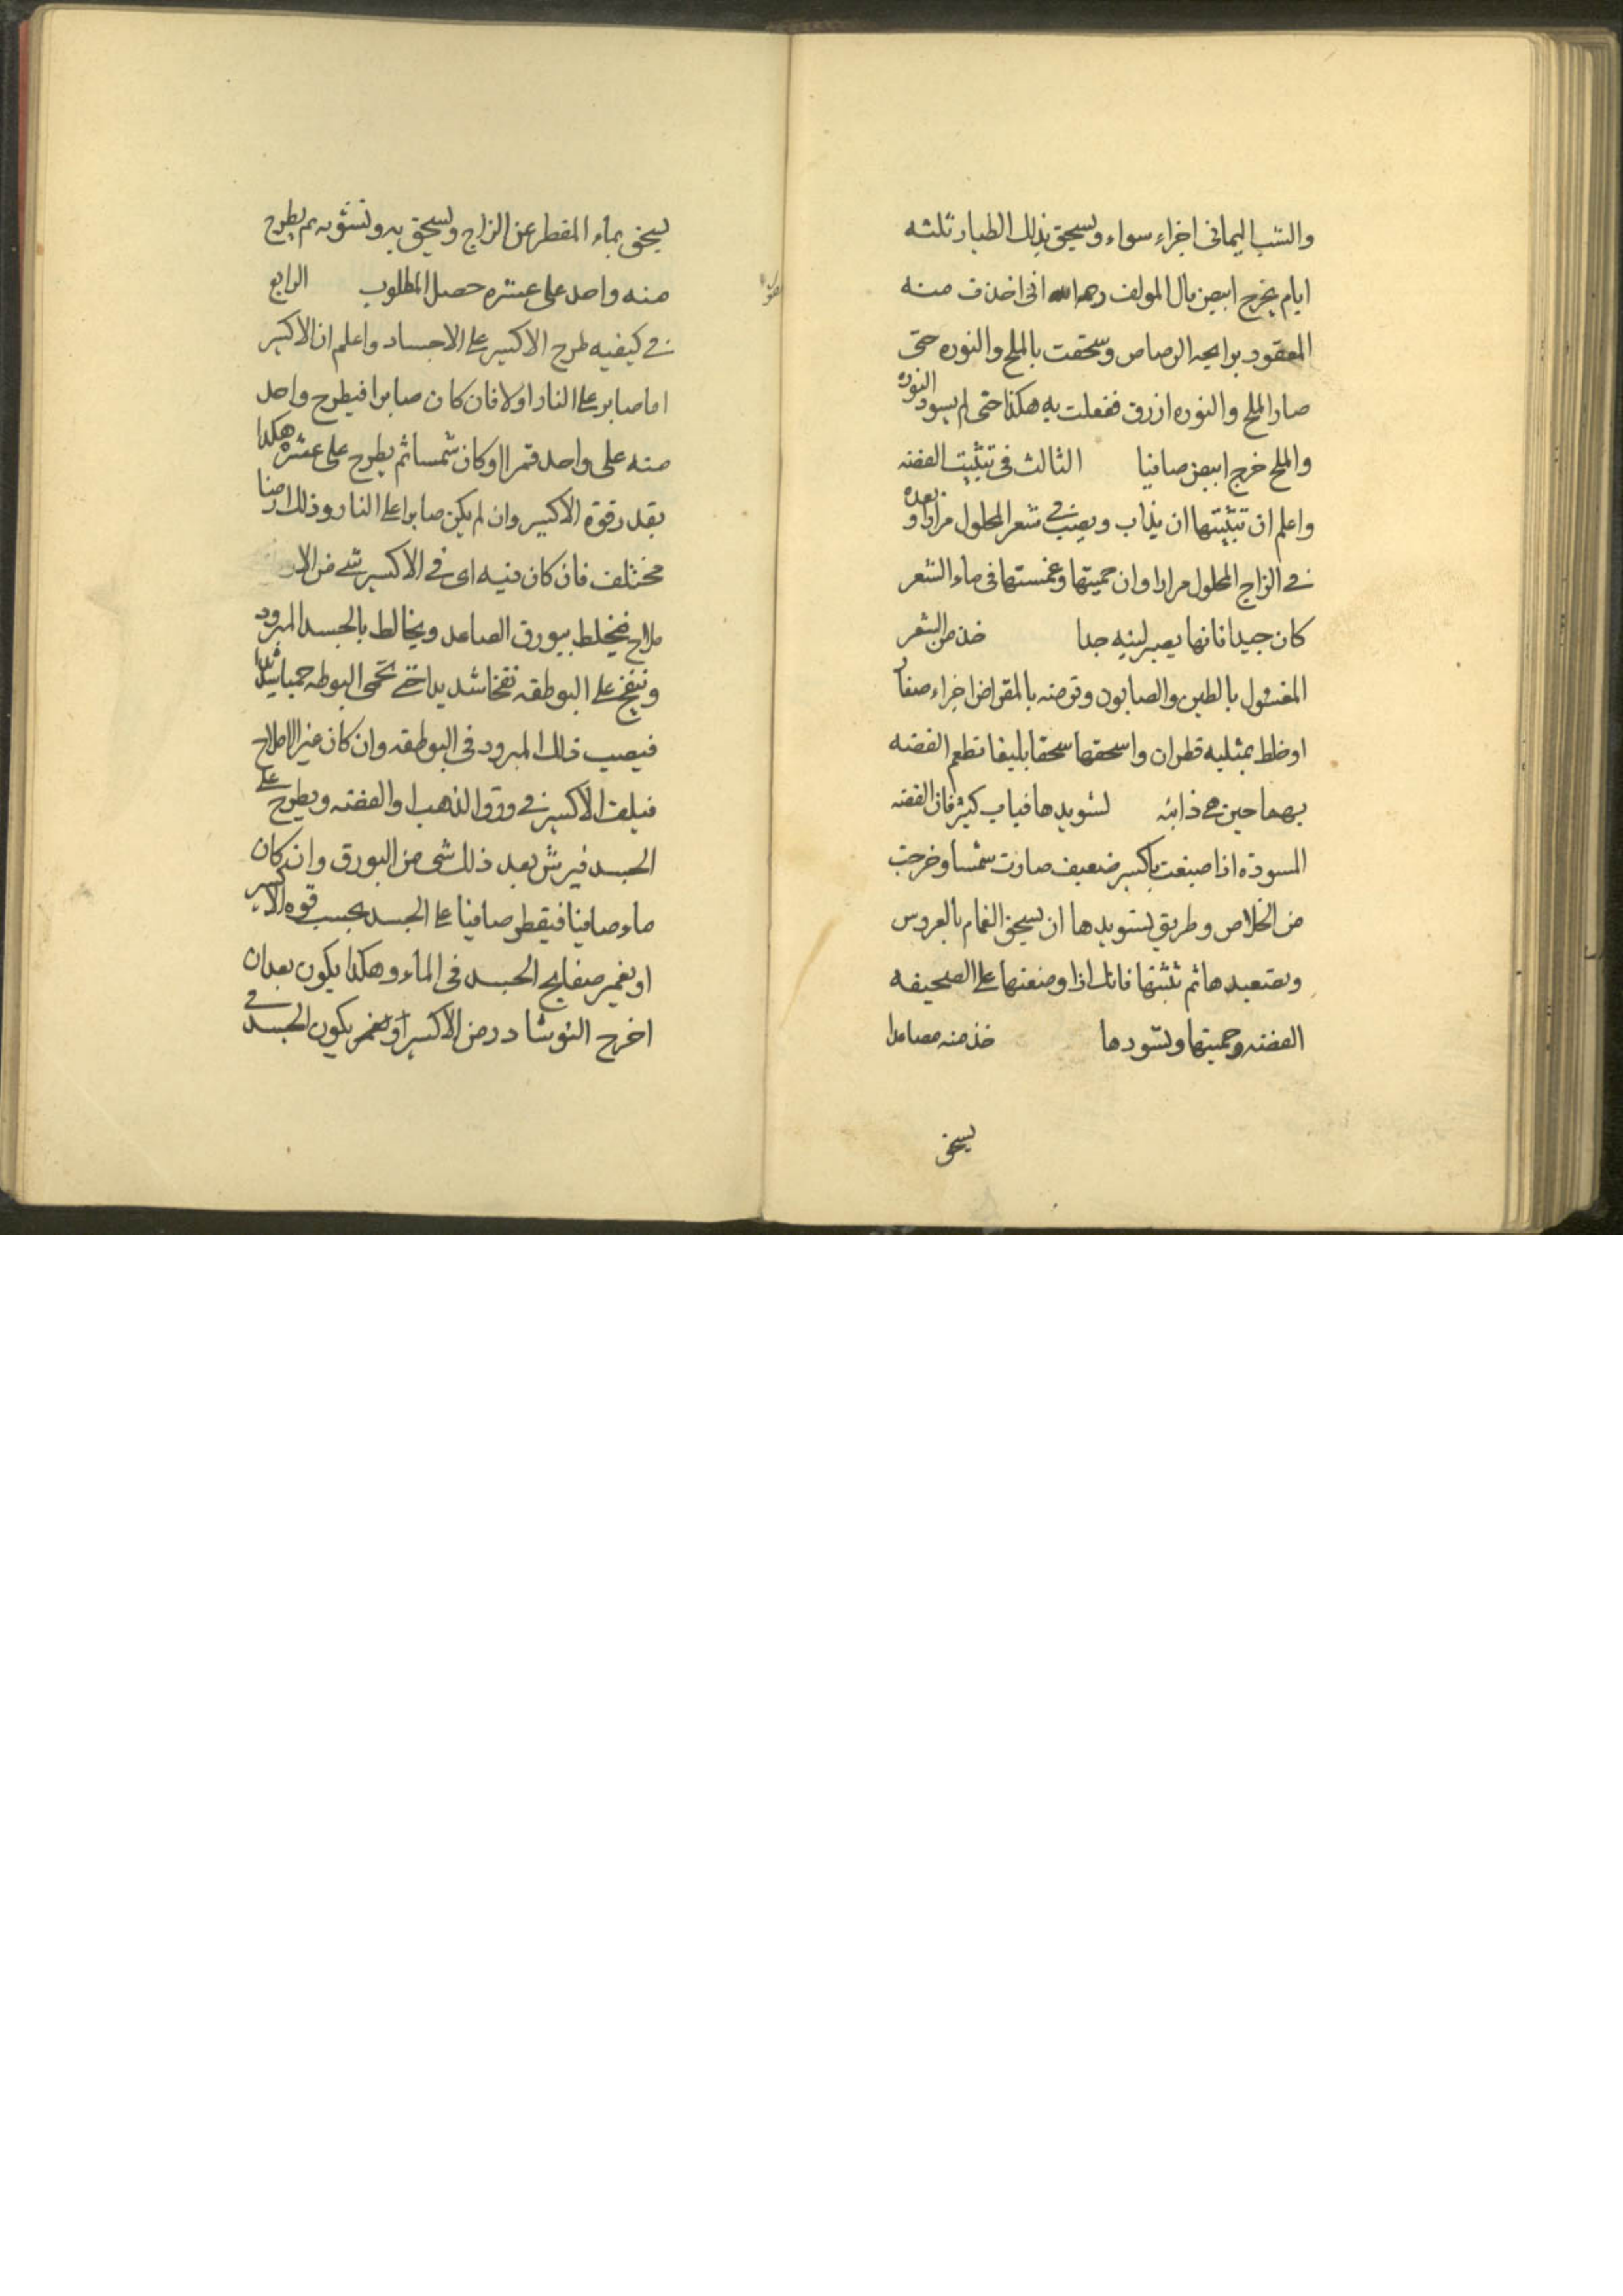 والشب اليمانى اجزاء سواء ويسحق بذلك الطيار ثلثه
ايام يخرج ابيض بال المولف رحمه الله انى اخذت منه
المعقود برايحه الرصاص وسحقت بالملح والنوره حتى
صار الملح والنوره ازرق ففعلت به هكذا حتى لم يسود النوره
والملح خرج ابيض صافيا الثالث فى تثبيت الفضه
واعلم ان تثبيتها ان يذاب ويصب فى شعر المحلول مرارا وبعده
فى الزاج المحلول مرارا وان حميتها وغمستها فى ماء الشعر
كان جيدا فانها يصير لينيه جدا خذ من الشعر
المغسول بالطين والصابون وتوضنه بالمقراض اجزاء صغار
اوخلط بمثليه قطران واسحقها سحقا بليغا تطعم الفضه
بهما حين هى ذائبه لتسويدها فياب كثير فان الفضه
المسودة اذا صبغت باكسير ضعيف صارت شمسا وخرجت
من الخلاص وطريق تسويدها ان يسحق الغمام بالعروس
وتصعيدها ثم تثبتها فانك اذا وضعتها على الصحيفه
الفضه وحميتها وتسودها خذ منه مصاعدا
يسحق
يسحق بماء المقطر عن الزاج ويسحق به وتشويه ثم يطرح
منه واحد على عشره حصل المطلوب الرابع
فى كيفيه طرح الاكسير على الاجساد واعلم ان الاكسير
اما صابر على النار اولا فان كان صابرا فيطرح واحد
منه على واحد قمرا اوكان شمسا ثم يطرح على عشره هكذا
بقدر قوة الاكسير وان لم يكن صابرا على النار وذلك ايضا
مختلف فان كان فيه اى فى الاكسير شى من الا
ملاح فيخلط ببورق الصاعد ويخالط بالجسد المبرود
وينفخ على البوطقه نفخا شديدا حتى تحمى البوطه حميا شديدا
فيصب ذلك المبرود فى البوطقه وان كان غير الاملاح
فيلف الاكسير فى ورق الذهب او الفضه ويطرح على
الجسد فيرش بعد ذلك شى من البورق وان كان
ماء صافيا فيقطر صافيا على الجسد بحسب قوه الاكسير
او يغمر صفايح الجسد فى الماء وهكذا يكون بعد ان
اخرج النوشادر من الاكسير او يغمر يكون الجسد فى